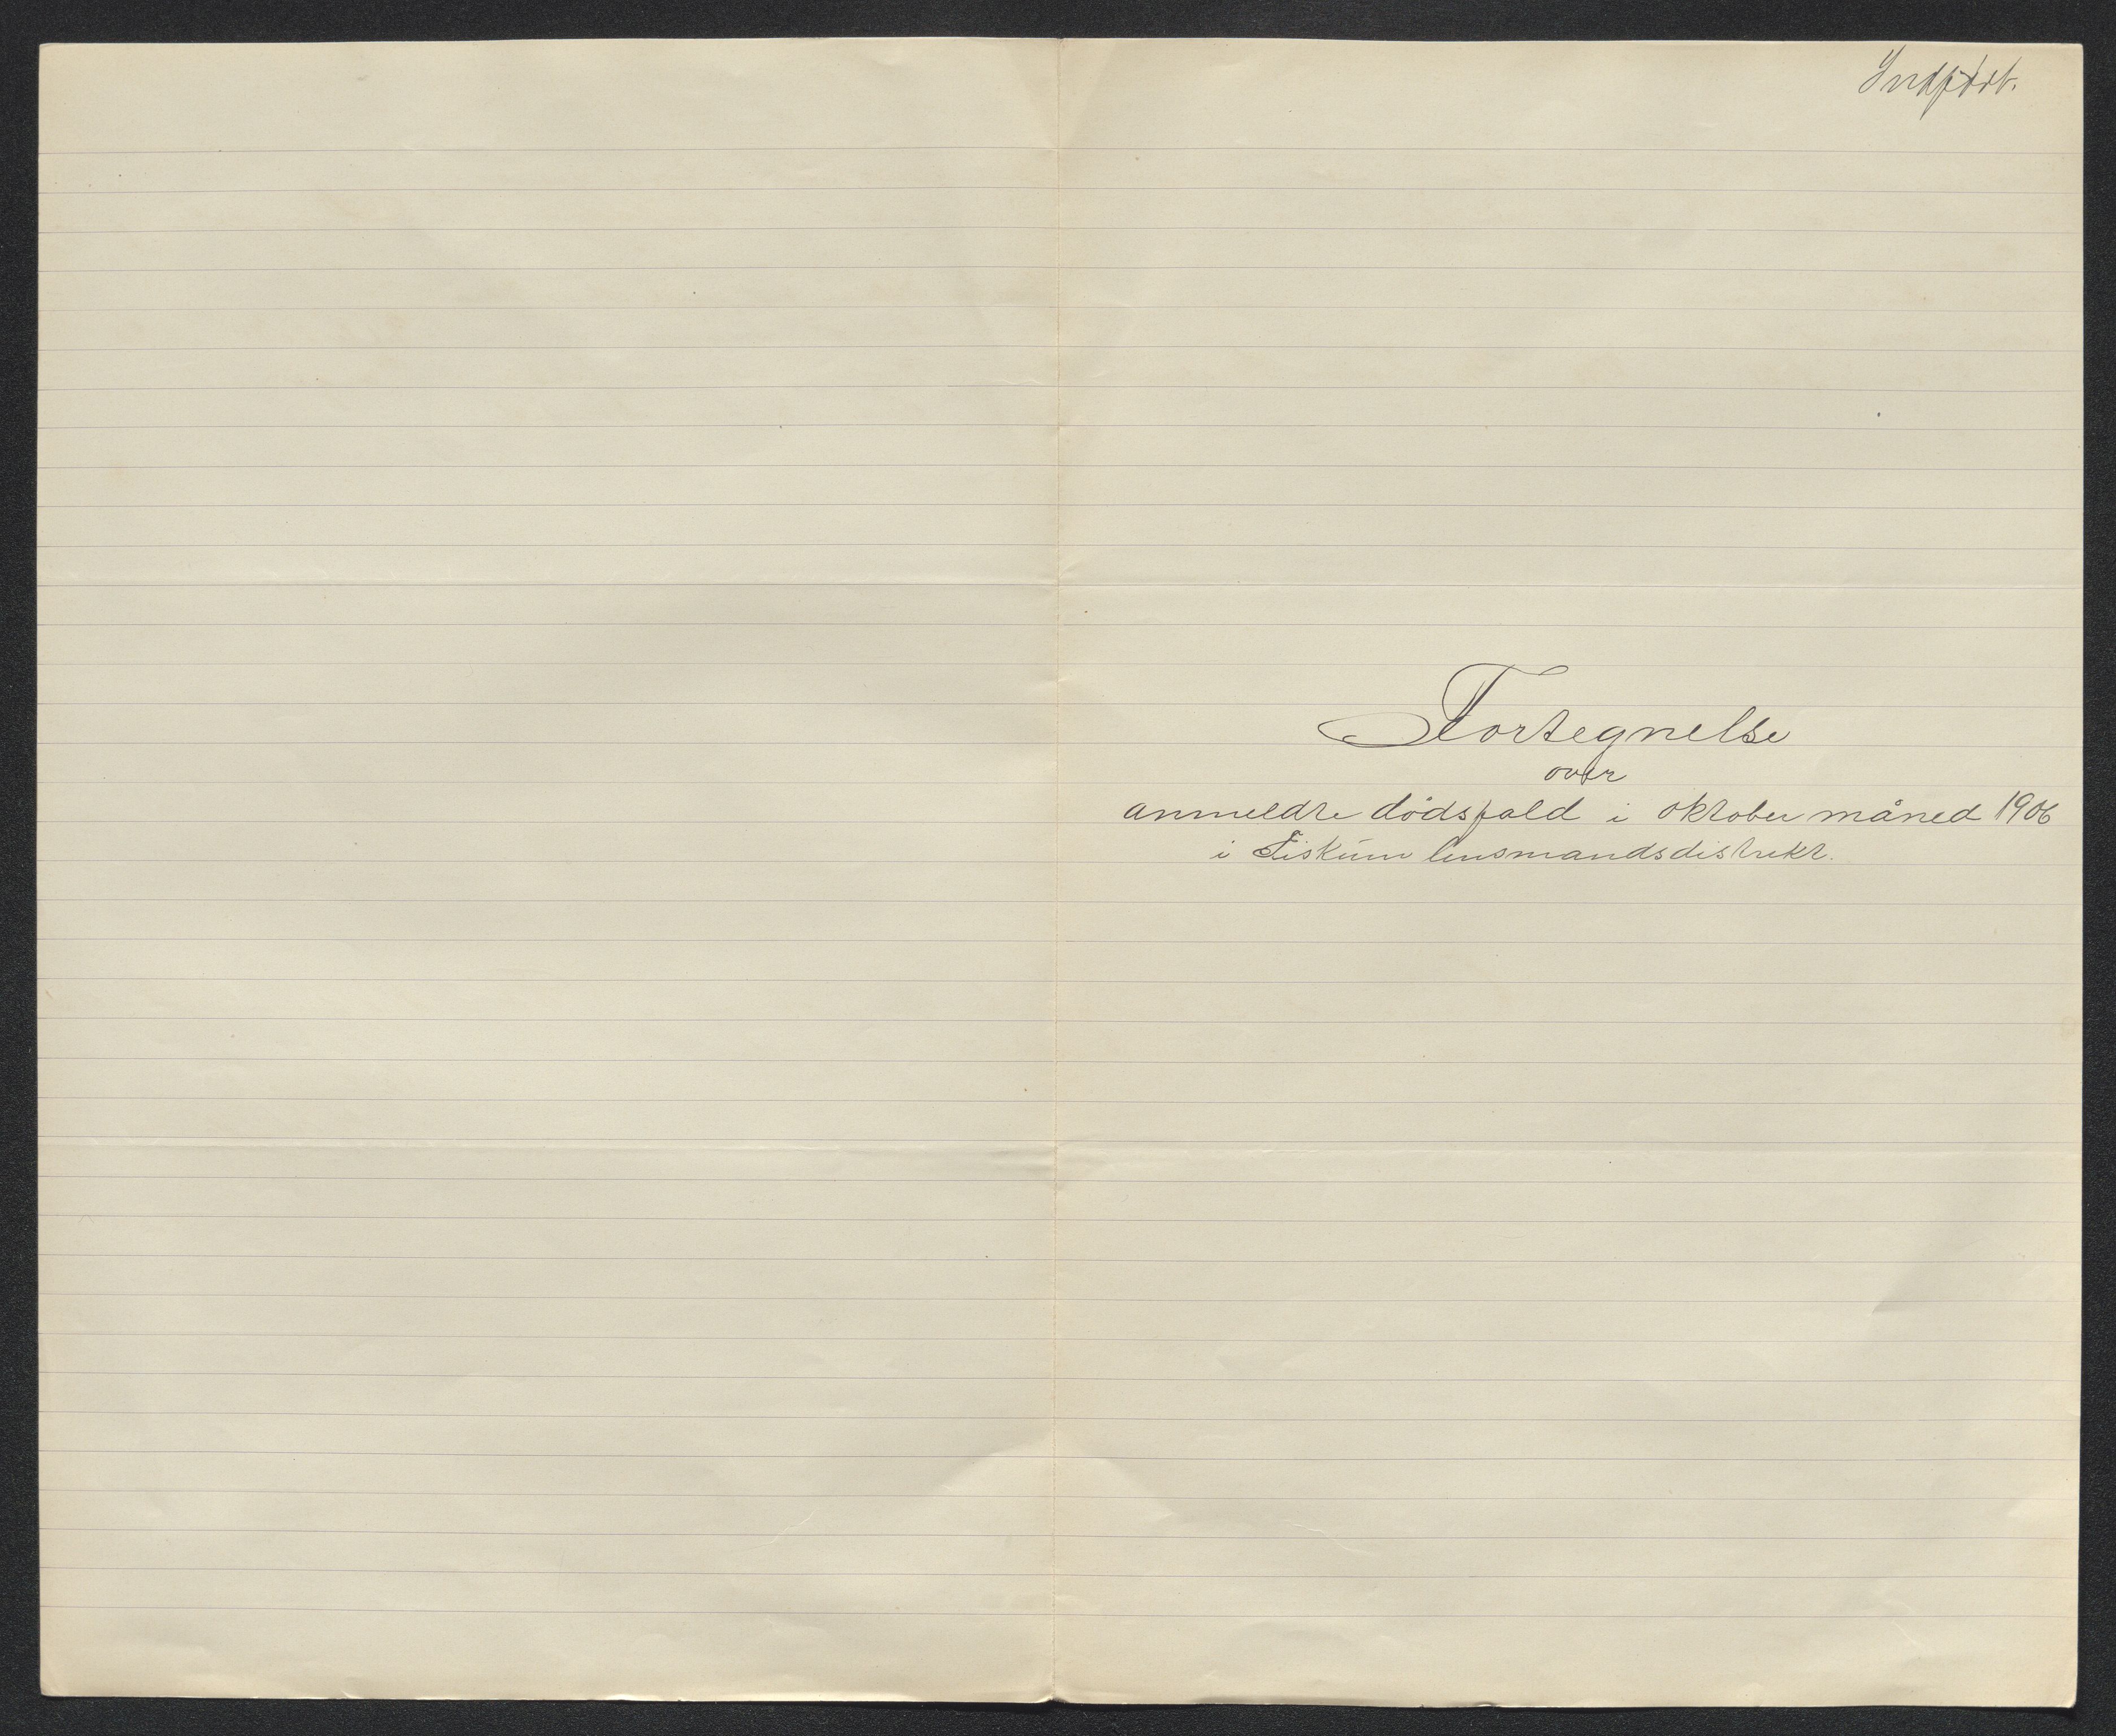 Indført.
Fortegnelse
over
anmeldte dödsfald i oktober måned 1906
i Fiskum lensmandsdistrikt.